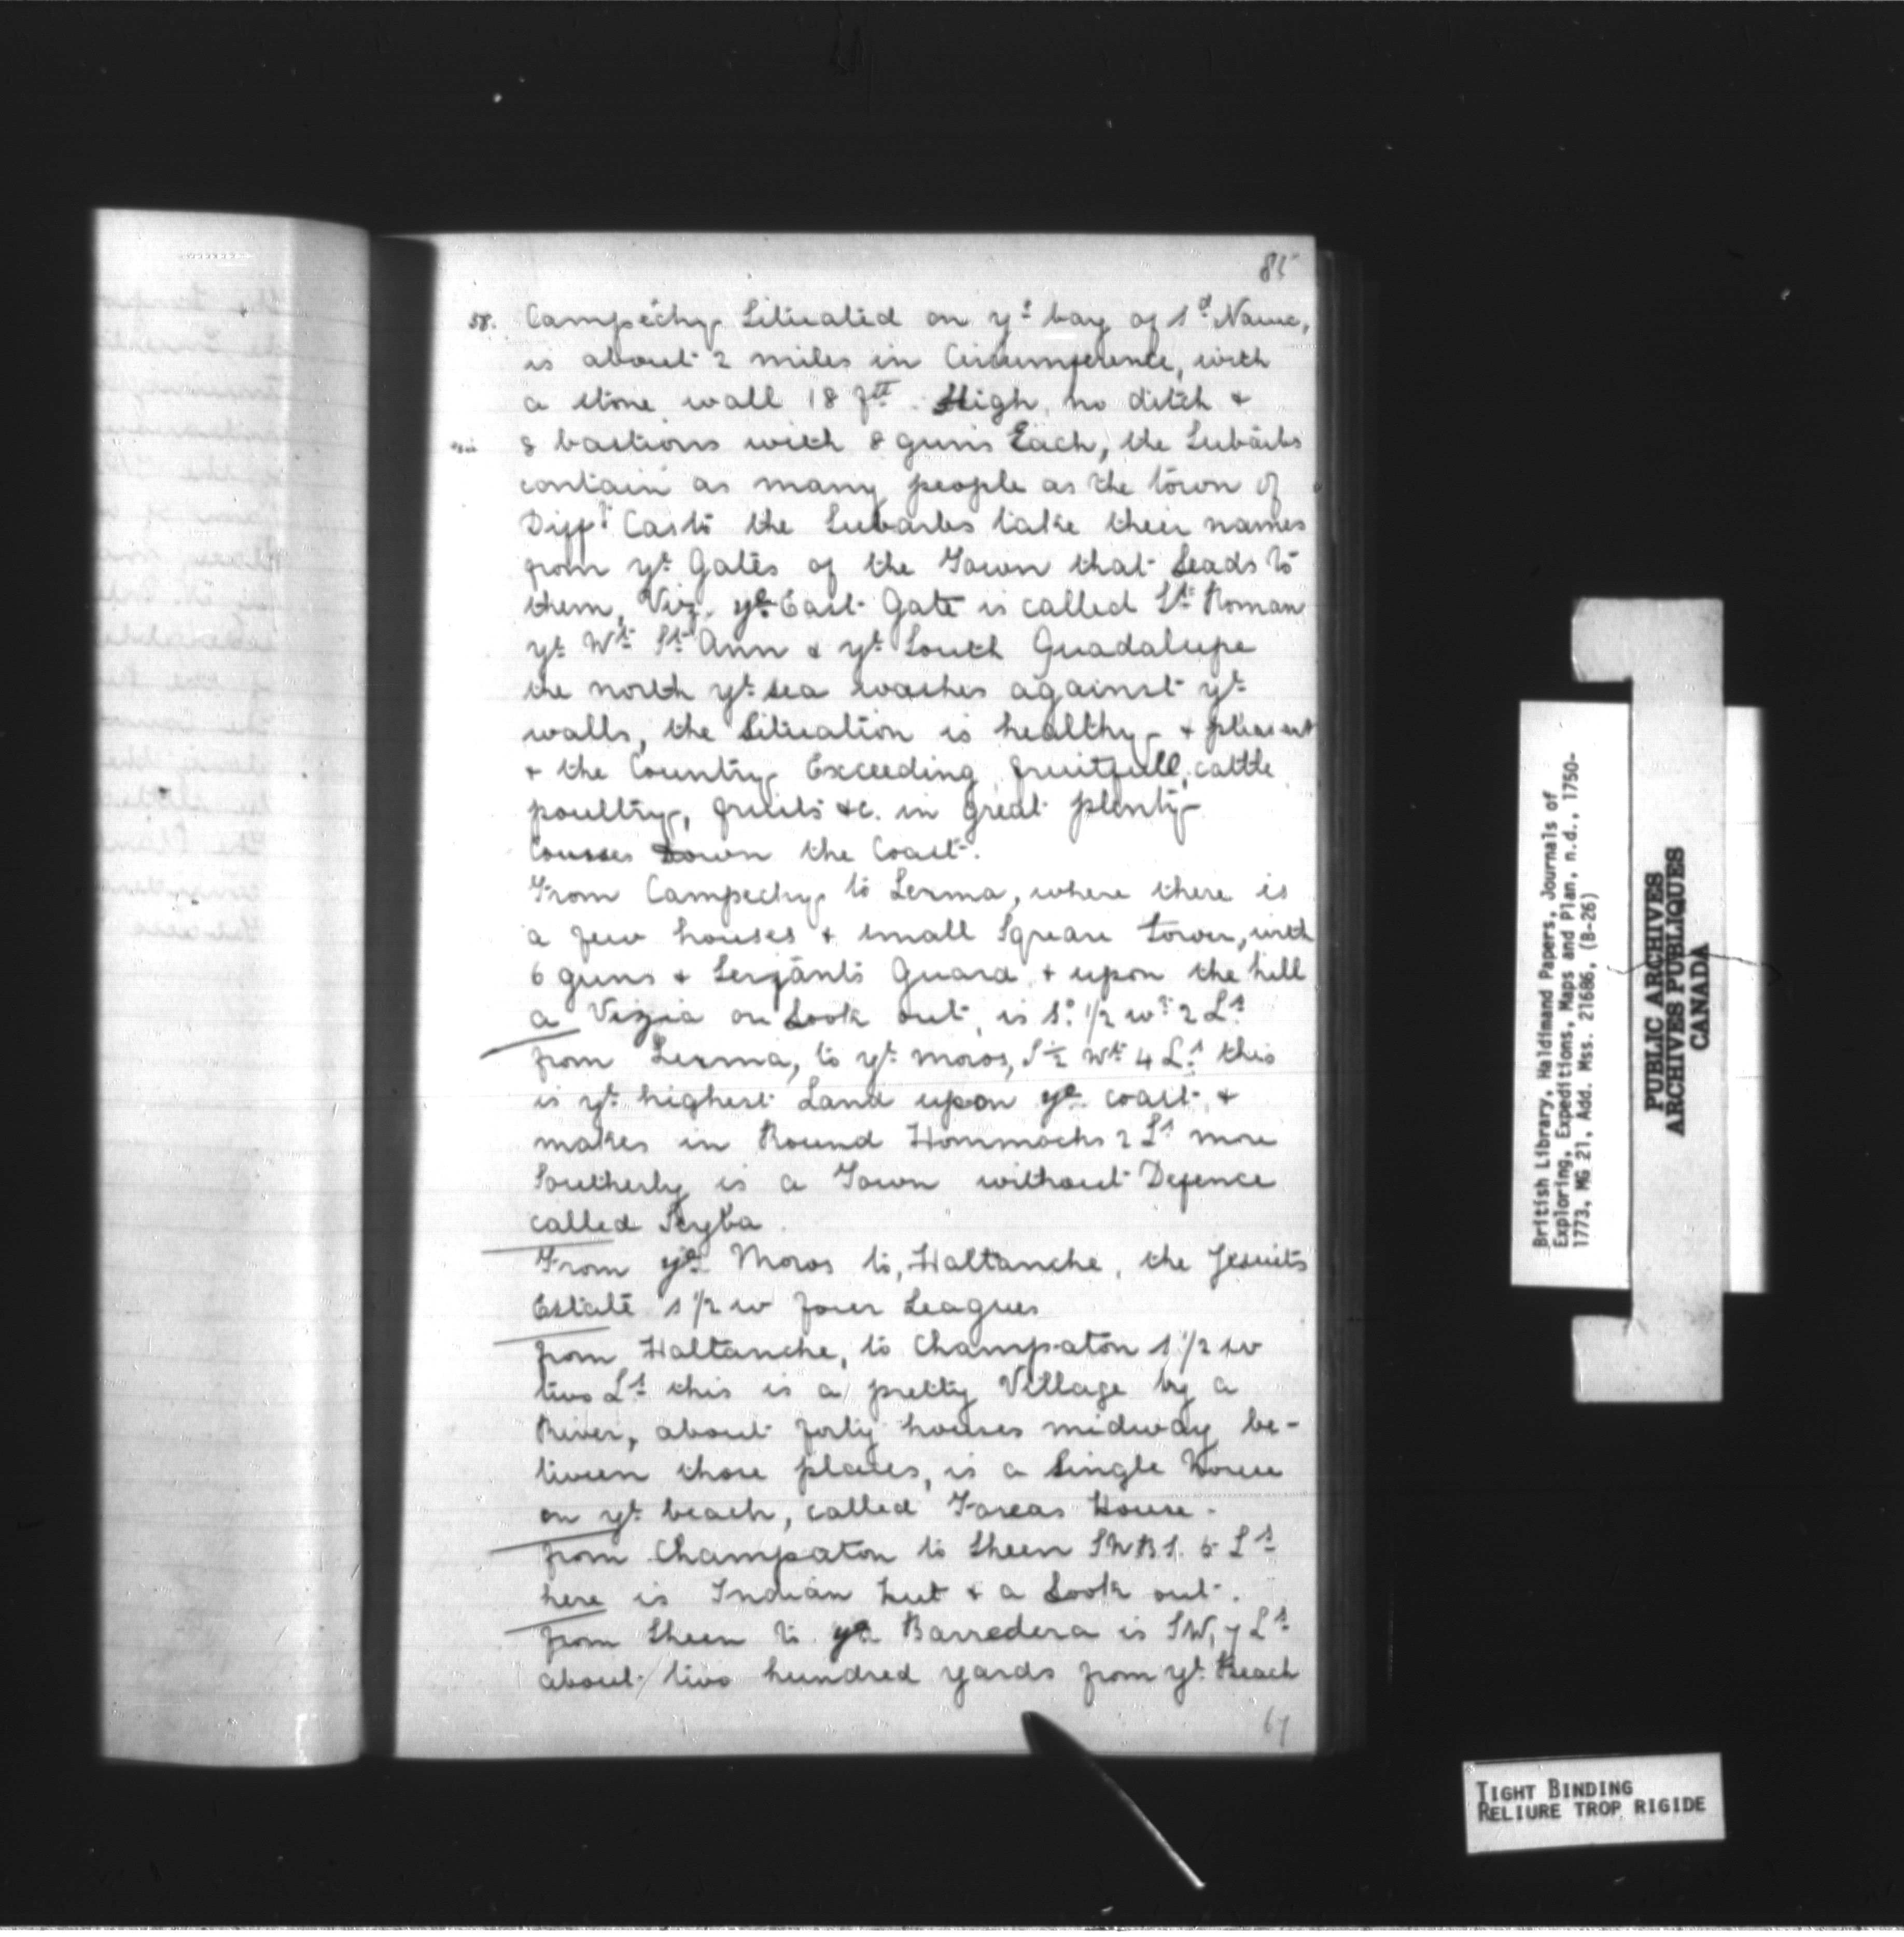 85
58. Campechy Situated on ye bay of sd Name,
is about 2 miles in Circumference, with
a stone wall 18 ftt High, no ditch &
8 bastions with 8 guns Each, the Subarbs
contain as many people as the town of
Difft Casts the Subarbs take their names
from ye Gates of the Town that Leads to
them, Viz. ye East Gate is called St Roman
ye Wt St Ann & ye South Guadalupe
the north ye sea washes against ye
walls, the Situation is healthy & pleasent
& the Country Exceeding fruitfull, cattle
poultry, fruits &c. in great plenty
Courses Down the Coast.
From Campechy to Lerma, where there is
a few houses & small Square tower, with
6 guns & Serjants Guard & upon the hill
a Vizia or Look out, is So. 1/2 wt 2 Ls
from Lerma, to ye moros, S 1/2 Wt 4 Ls this
is ye highest Land upon ye coast &
makes in Round Hommocks 2 Ls more
Southerly is a Town without Defence
called Seyba
From ye Moros to, Haltanche, the Jesuits
Estate s 1/2 w four Leagues
from Haltanche, to Champaton s 1/2 w
two Ls this is a pretty Village by a
River, about forty houses midway be-
tween those places, is a Single House
on ye beach, called Fareas House.
from Champaton to Sheen SWBS. 5 Ls
here is Indian hut & a Look out.
from Sheen to ye Barredera is SW, 7 Ls
about two hundred yards from ye Beach
67
British Library, Haldimand Papers, Journals of
Exploring, Expeditions, Maps and Plan, n.d., 1750-
1773, MG 21, Add. Mss. 21686, (B-26)
PUBLIC ARCHIVES
ARCHIVES PUBLIQUES
CANADA
TIGHT BINDING
RELIURE TROP RIGIDE